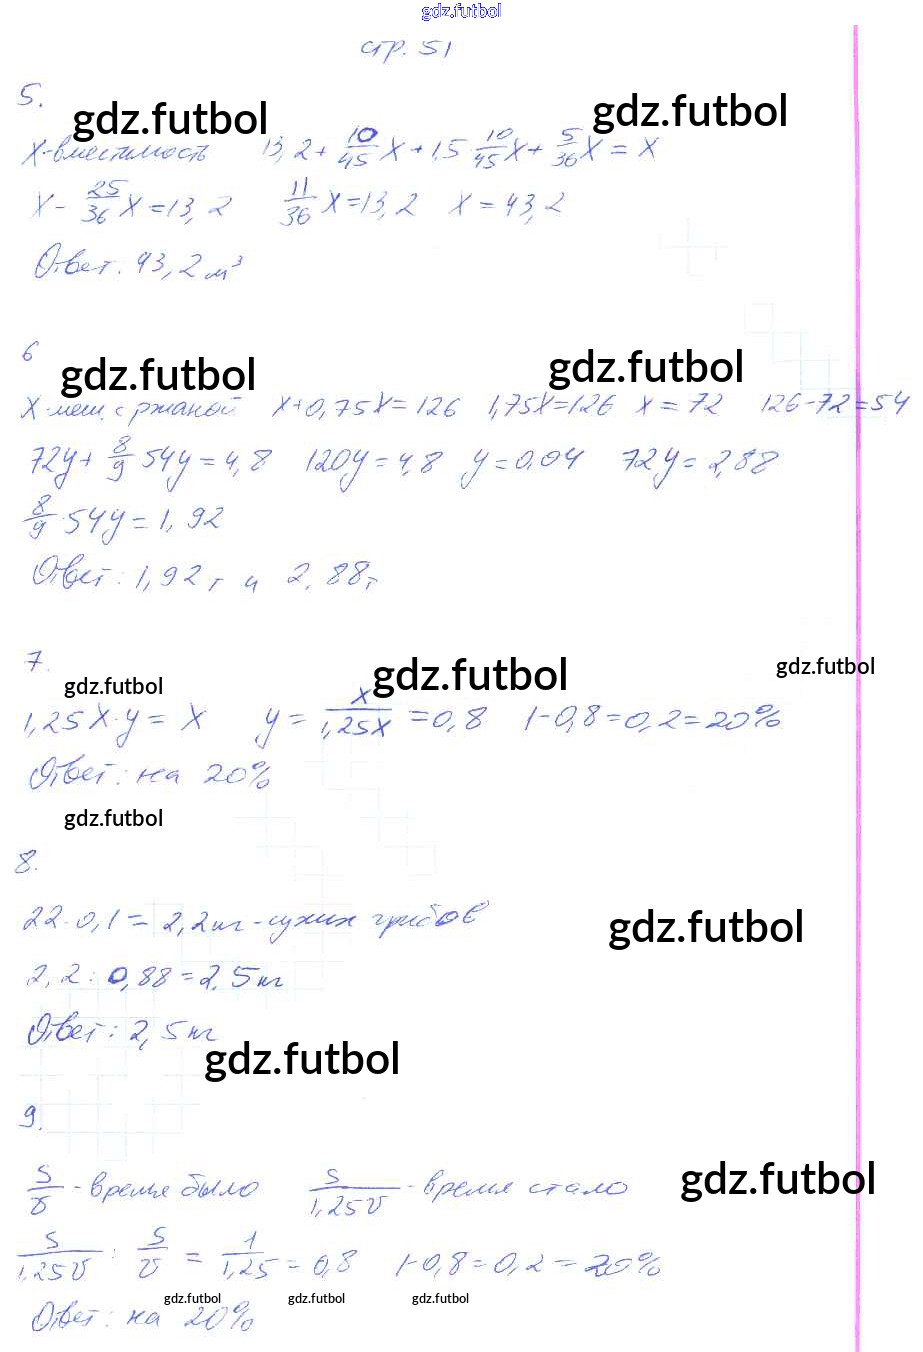 gdz.futbol
стр. 51
5.
gdz.futbol gdz.futbol
x - вместимость 13,2 + 10/45 x + 1,5 · 10/45 x + 5/36 x = x
x - 25/36 x = 13,2 11/36 x = 13,2 x = 43,2
Ответ: 43,2 м³
6
gdz.futbol gdz.futbol
x - меш. с ржаной x + 0,75x = 126 1,75x = 126 x = 72 126 - 72 = 54
72y + 8/9 · 54y = 4,8 120y = 4,8 y = 0,04 72y = 2,88
8/9 · 54y = 1,92
Ответ: 1,92 т и 2,88 т
7.
gdz.futbol gdz.futbol gdz.futbol
1,25x · y = x y = x/1,25x = 0,8 1 - 0,8 = 0,2 = 20%
Ответ: на 20%
gdz.futbol
8.
22 · 0,1 = 2,2 кг - сухих грибов
gdz.futbol
2,2 : 0,88 = 2,5 кг
Ответ: 2,5 кг
gdz.futbol
9.
S/v - время было S/1,25v - время стало
gdz.futbol
S/1,25v : S/v = 1/1,25 = 0,8 1 - 0,8 = 0,2 = 20%
gdz.futbol gdz.futbol gdz.futbol
Ответ: на 20%